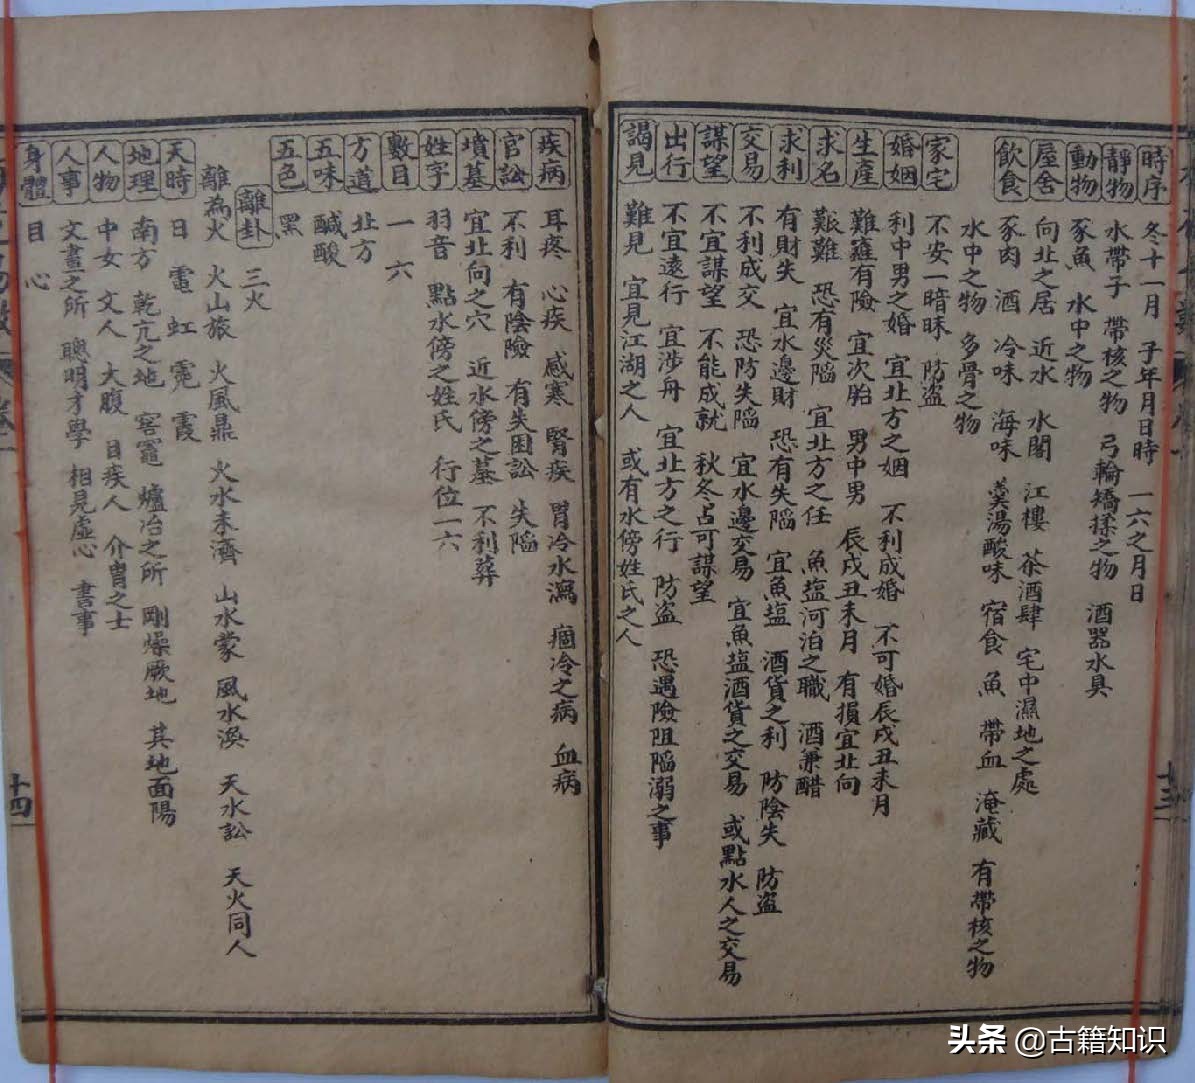 時序 冬十一月 子年月日時 一六之月日
靜物 水帶子 帶核之物 弓輪矯揉之物 酒器水具
動物 豕魚 水中之物
屋舍 向北之居 近水 水閣 江樓 茶酒肆 宅中濕地之處
飲食 豕肉 酒 冷味 海味 羹湯酸味 宿食 魚 帶血 淹藏 有帶核之物
水中之物 多骨之物
家宅 不安一暗昧 防盜
婚姻 利中男之婚 宜北方之姻 不利成婚 不可婚辰戌丑未月
生產 難產有險 宜次胎 男中男 辰戌丑未月 有損宜北向
求名 艱難 恐有災陷 宜北方之任 魚塩河泊之職 酒兼醋
求利 有財失 宜水邊財 恐有失陷 宜魚塩 酒貨之利 防陰失 防盜
交易 不利成交 恐防失陷 宜水邊交易 宜魚塩酒貨之交易 或點水人之交易
謀望 不宜謀望 不能成就 秋冬占可謀望
出行 不宜遠行 宜涉舟 宜北方之行 防盜 恐遇險阻陷溺之事
謁見 難見 宜見江湖之人 或有水傍姓氏之人
疾病 耳疼 心疾 感寒 腎疾 胃冷水瀉 痼冷之病 血病
官訟 不利 有陰險 有失困訟 失陷
墳墓 宜北向之穴 近水傍之墓 不利葬
姓字 羽音 點水傍之姓氏 行位一六
數目 一 六
方道 北方
五味 鹹酸
五色 黑
離卦 三火
離為火 火山旅 火風鼎 火水未濟 山水蒙 風水渙 天水訟 天火同人
天時 日 電 虹 霓 霞
地理 南方 乾亢之地 窖竈 爐冶之所 剛燥厥地 其地面陽
人物 中女 文人 大腹 目疾人 介冑之士
人事 文畫之所 聰明才學 相見虛心 書事
身體 目 心
十三
十四
头条 @古籍知识